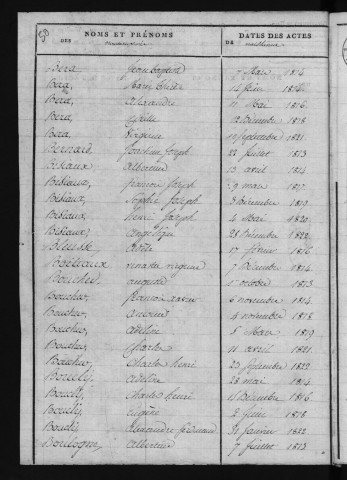 NOMS ET PRÉNOMS DATES DES ACTES
DES DE naissance
Bera, Jean Baptiste 7 Mars 1813
Bera, Marie Louise 14 février 1816
Bera, Alexandre 11 Mai 1816
Bera, 12 Décembre 1818
Bera, Virginie 10 Septembre 1821
Bernard, Joachim Joseph 22 Juillet 1813
Bisiaux, Albertine 13 avril 1814
Bisiaux, françois Joseph 9 mars 1817
Bisiaux, Sophie Joseph 3 Décembre 1819
Bisiaux, henri Joseph 4 Mai 1820
Bisiaux, angélique 28 Décembre 1822
Odile 17 février 1816
Boitiaux, renatte virginie 7 Décembre 1814
Boucher, auguste 5 octobre 1813
Boucher, françois xavier 6 novembre 1814
Boucher, antoine 4 novembre 1818
Boucher, adeline 5 Mars 1819
Boucher, Charles 11 avril 1821
Boucher, Charles henri 23 Septembre 1822
adeline 28 mai 1814
Charles henri 11 Décembre 1816
eugène 2 Juin 1818
alexandre ferdinand 31 Janvier 1822
Boulogne, albertine 7 Juillet 1813